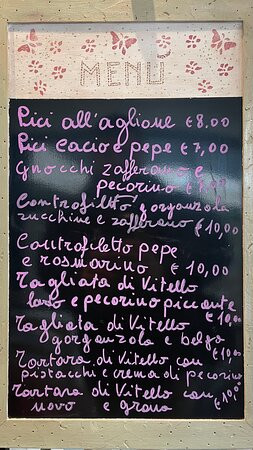 MENÙ
Pici all'aglione €8.00
Pici cacio e pepe €7,00
Gnocchi zafferano e
pecorino €8,00
Controfiletto gorgonzola
zucchine e zafferano €10,00
Controfiletto pepe
e rosmarino €10,00
Tagliata di Vitello
lardo e pecorino piccante
€10,00
Tagliata di Vitello
gorgonzola e belga €10,00
Tartara di Vitello con
pistacchi e crema di pecorino
€10,00
Tartara di Vitello con
uovo e grana €10,00